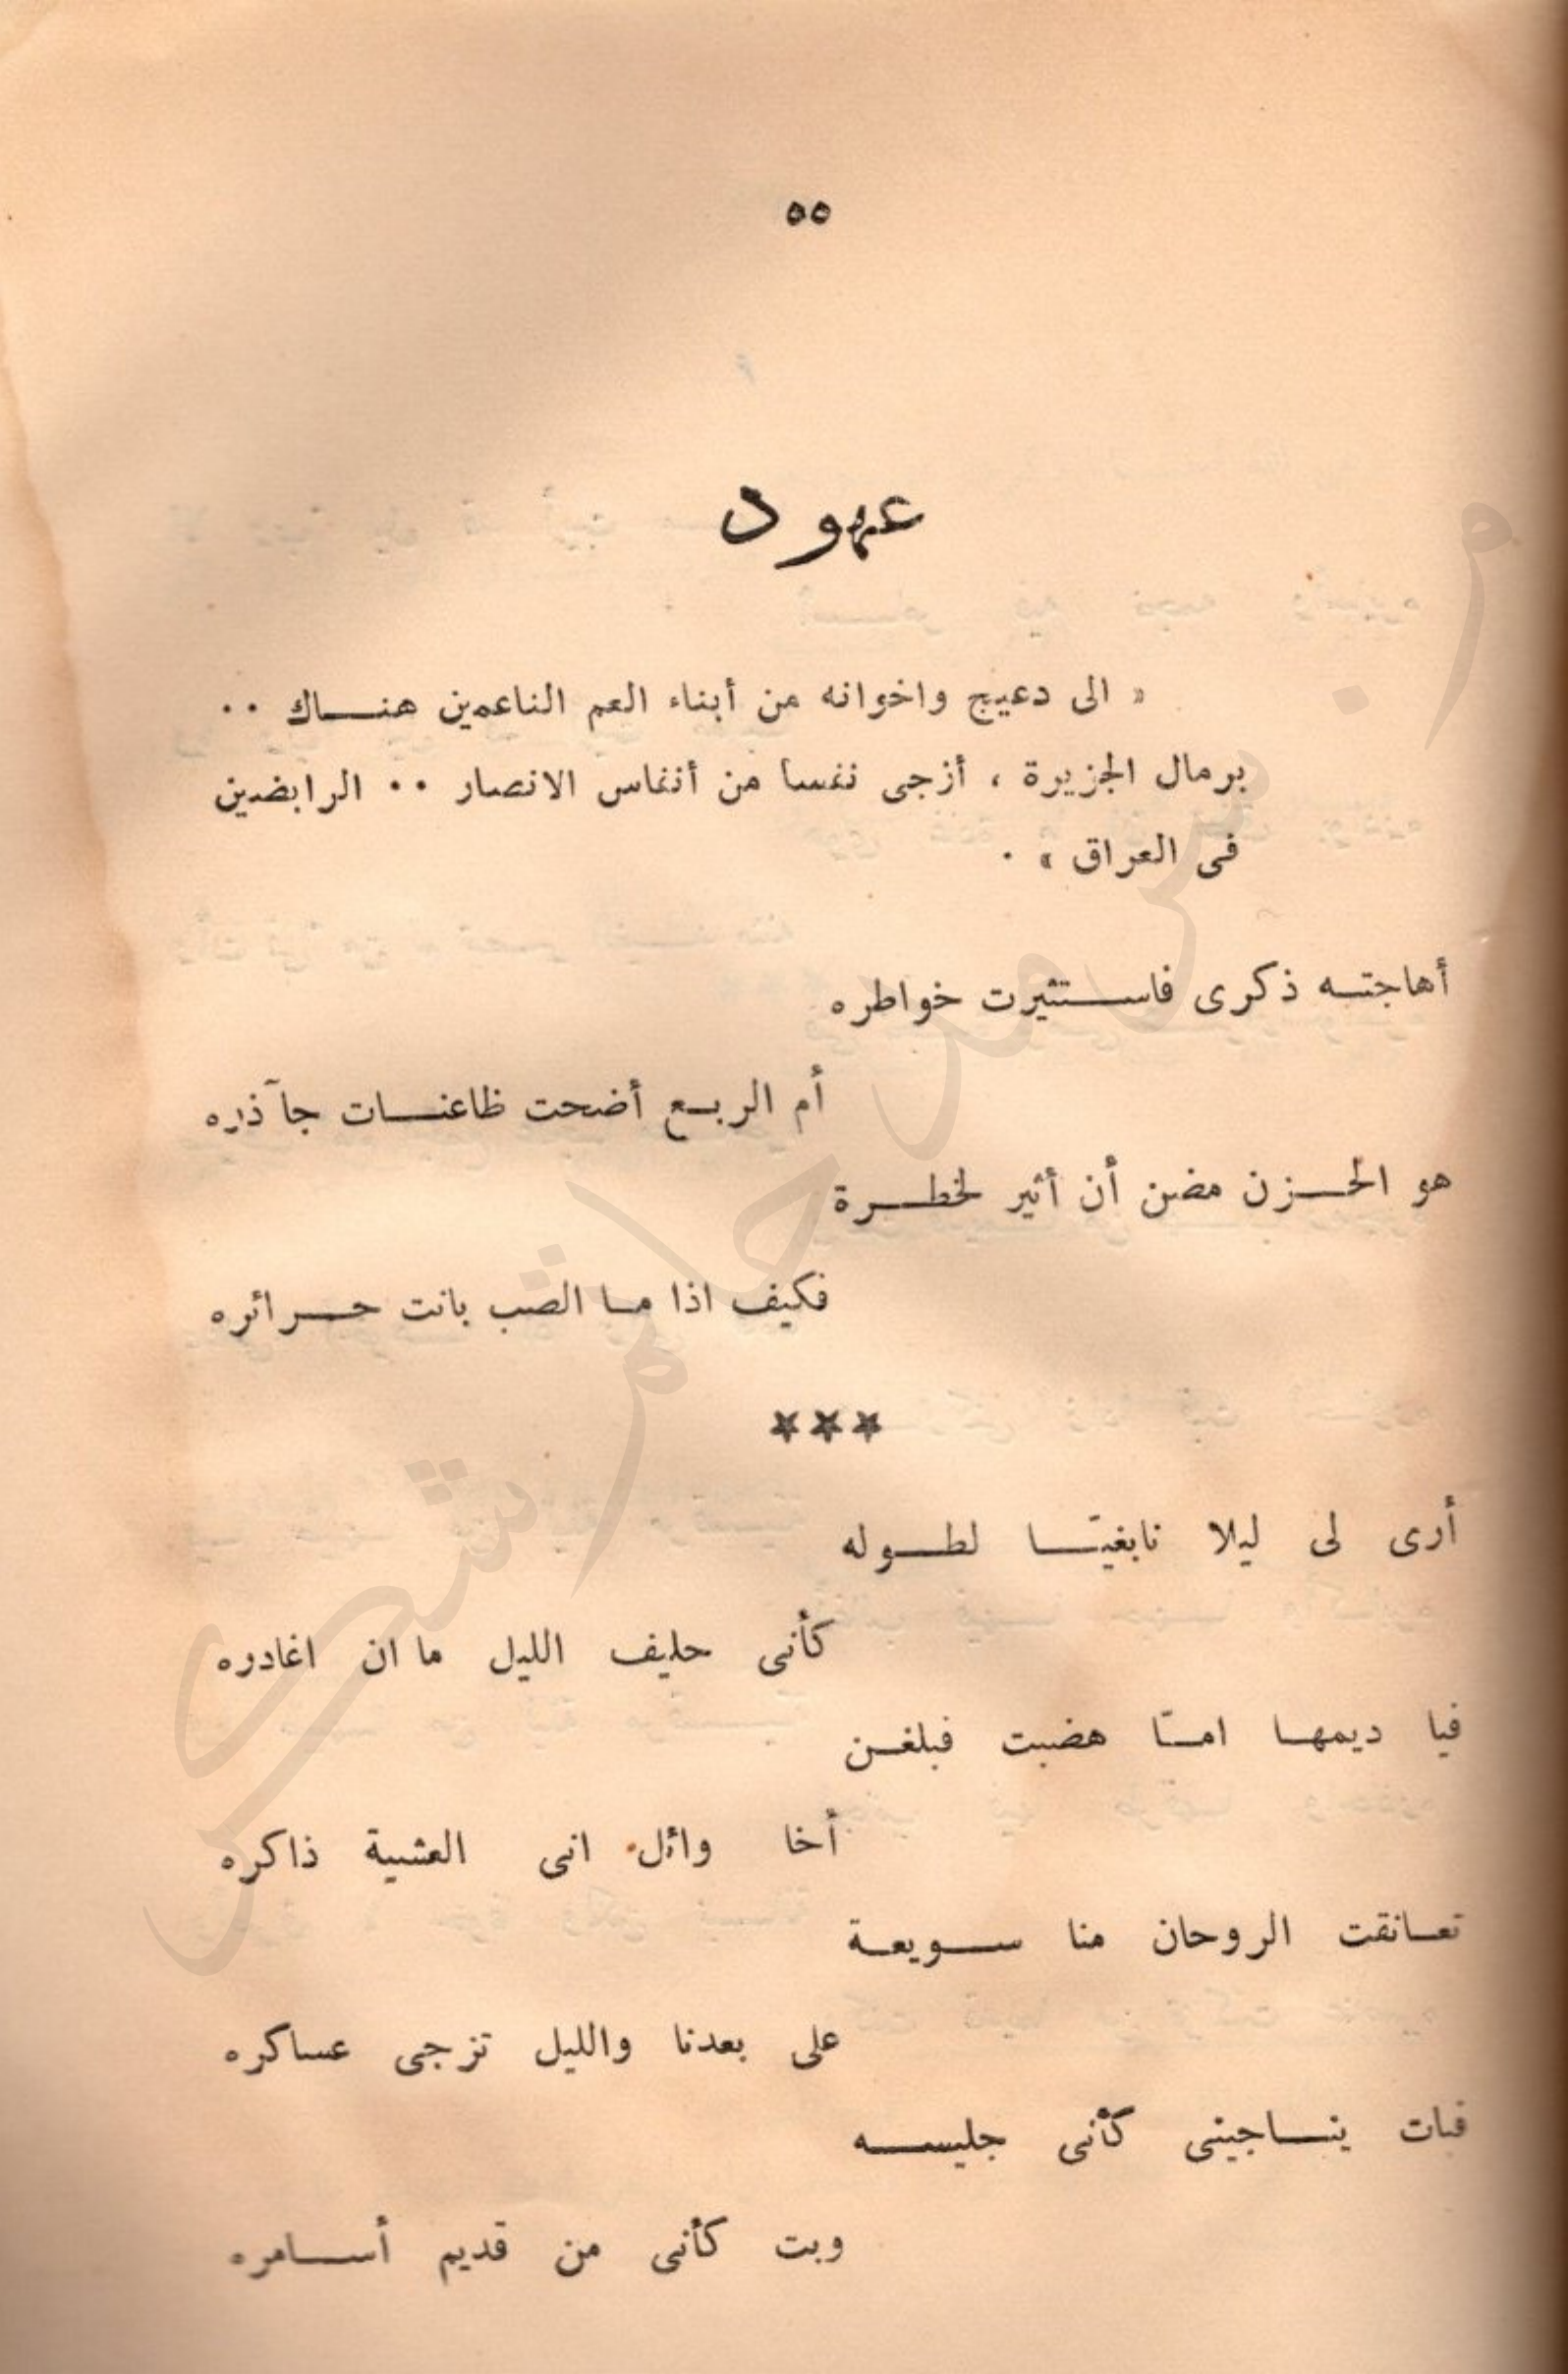 ٥٥
عهود
« الى دعيج واخوانه من أبناء العم الناعمين هنــاك ٠٠
برمال الجزيرة ، أزجى نفسا من أنفاس الانصار ٠٠ الرابضين
فى العراق » ٠
أهاجتــه ذكرى فاســتثيرت خواطره
أم الربــع أضحت ظاعنــات جآذره
هو الحــزن مضن أن أثير لخطــرة
فكيف اذا مــا الصب بانت حــرائره
***
أرى لى ليلا نابغيّــا لطــوله
كأنى حليف الليل ما ان اغادره
فيا ديمهــا امــّا هضبت فبلغــن
أخا وائل انى العشية ذاكره
تعــانقت الروحان منا ســويعــة
على بعدنا والليل تزجى عساكره
فبات ينــاجينى كأنى جليســه
وبت كأنى من قديم أســامره